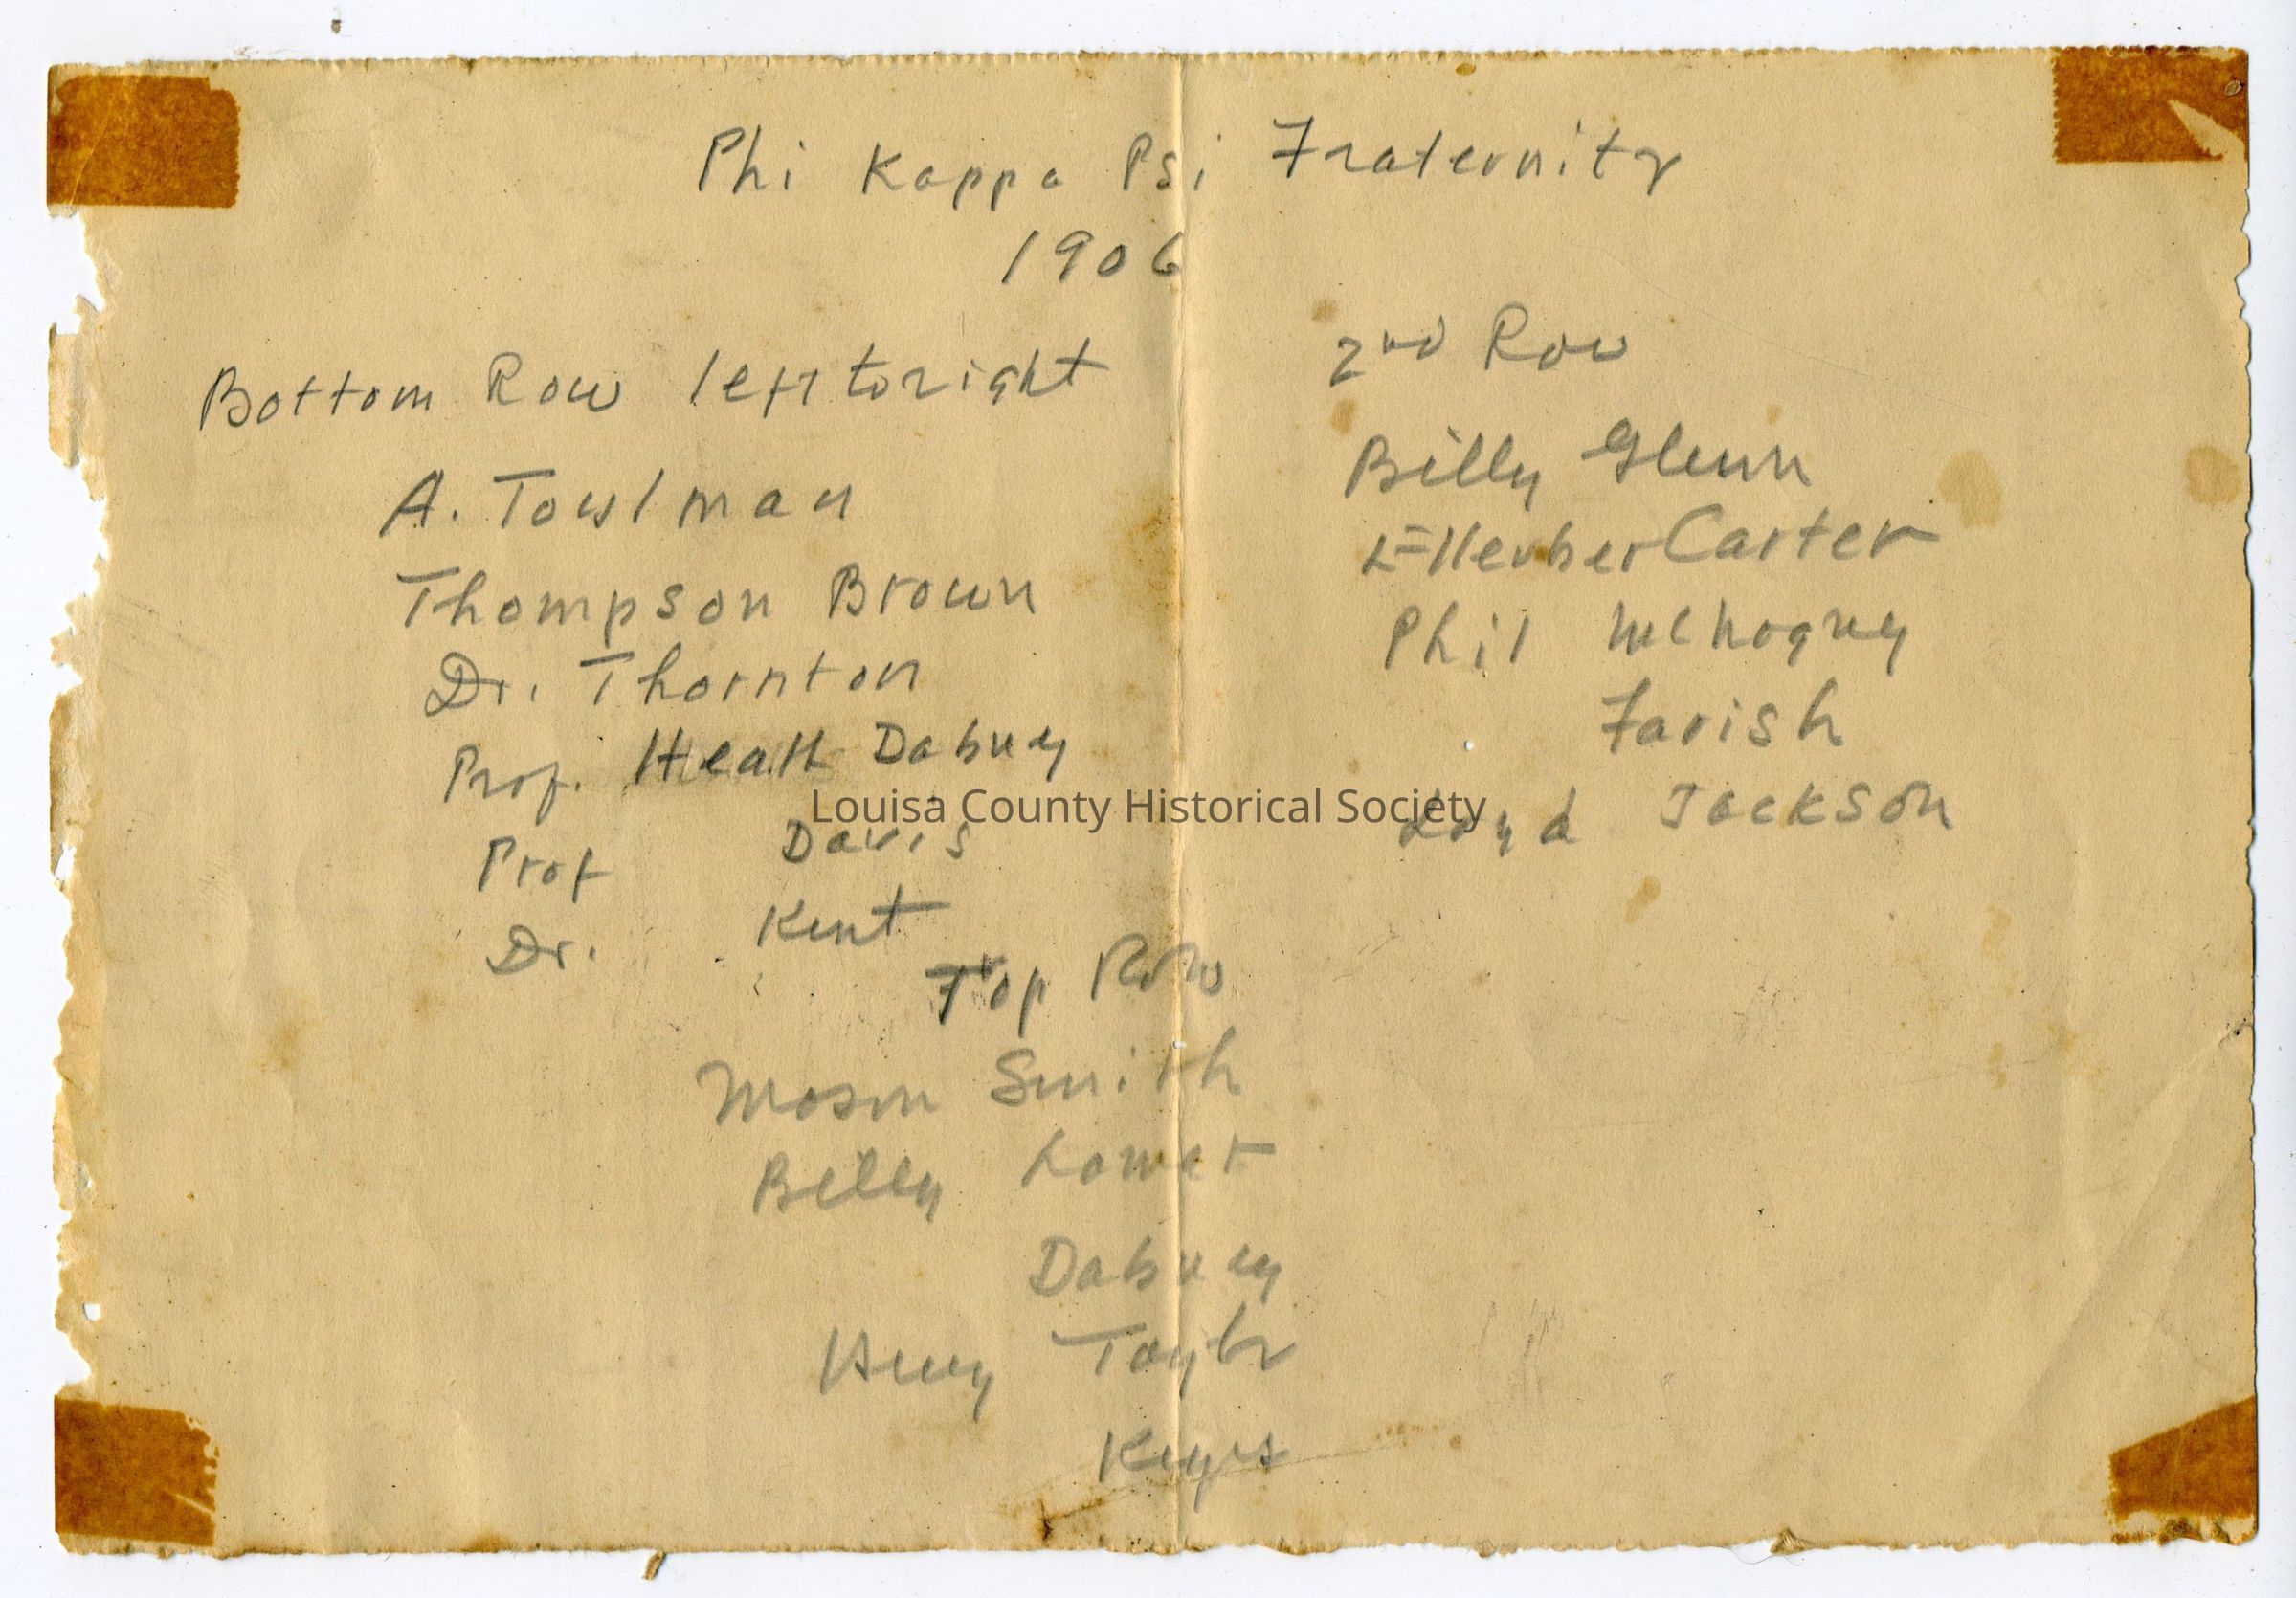 Phi Kappa Psi Fraternity
1906
Bottom Row left to right
A. Towlman
Thompson Brown
Dr. Thornton
Prof. Heath Dabney
Prof Davis
Dr. Kent
2nd Row
Billy Glenn
Carter
Phil
Farish
Loyd Jackson
Top Row
Mason Smith
Billy
Dabney
Henry Taylor
Keyes
Louisa County Historical Society